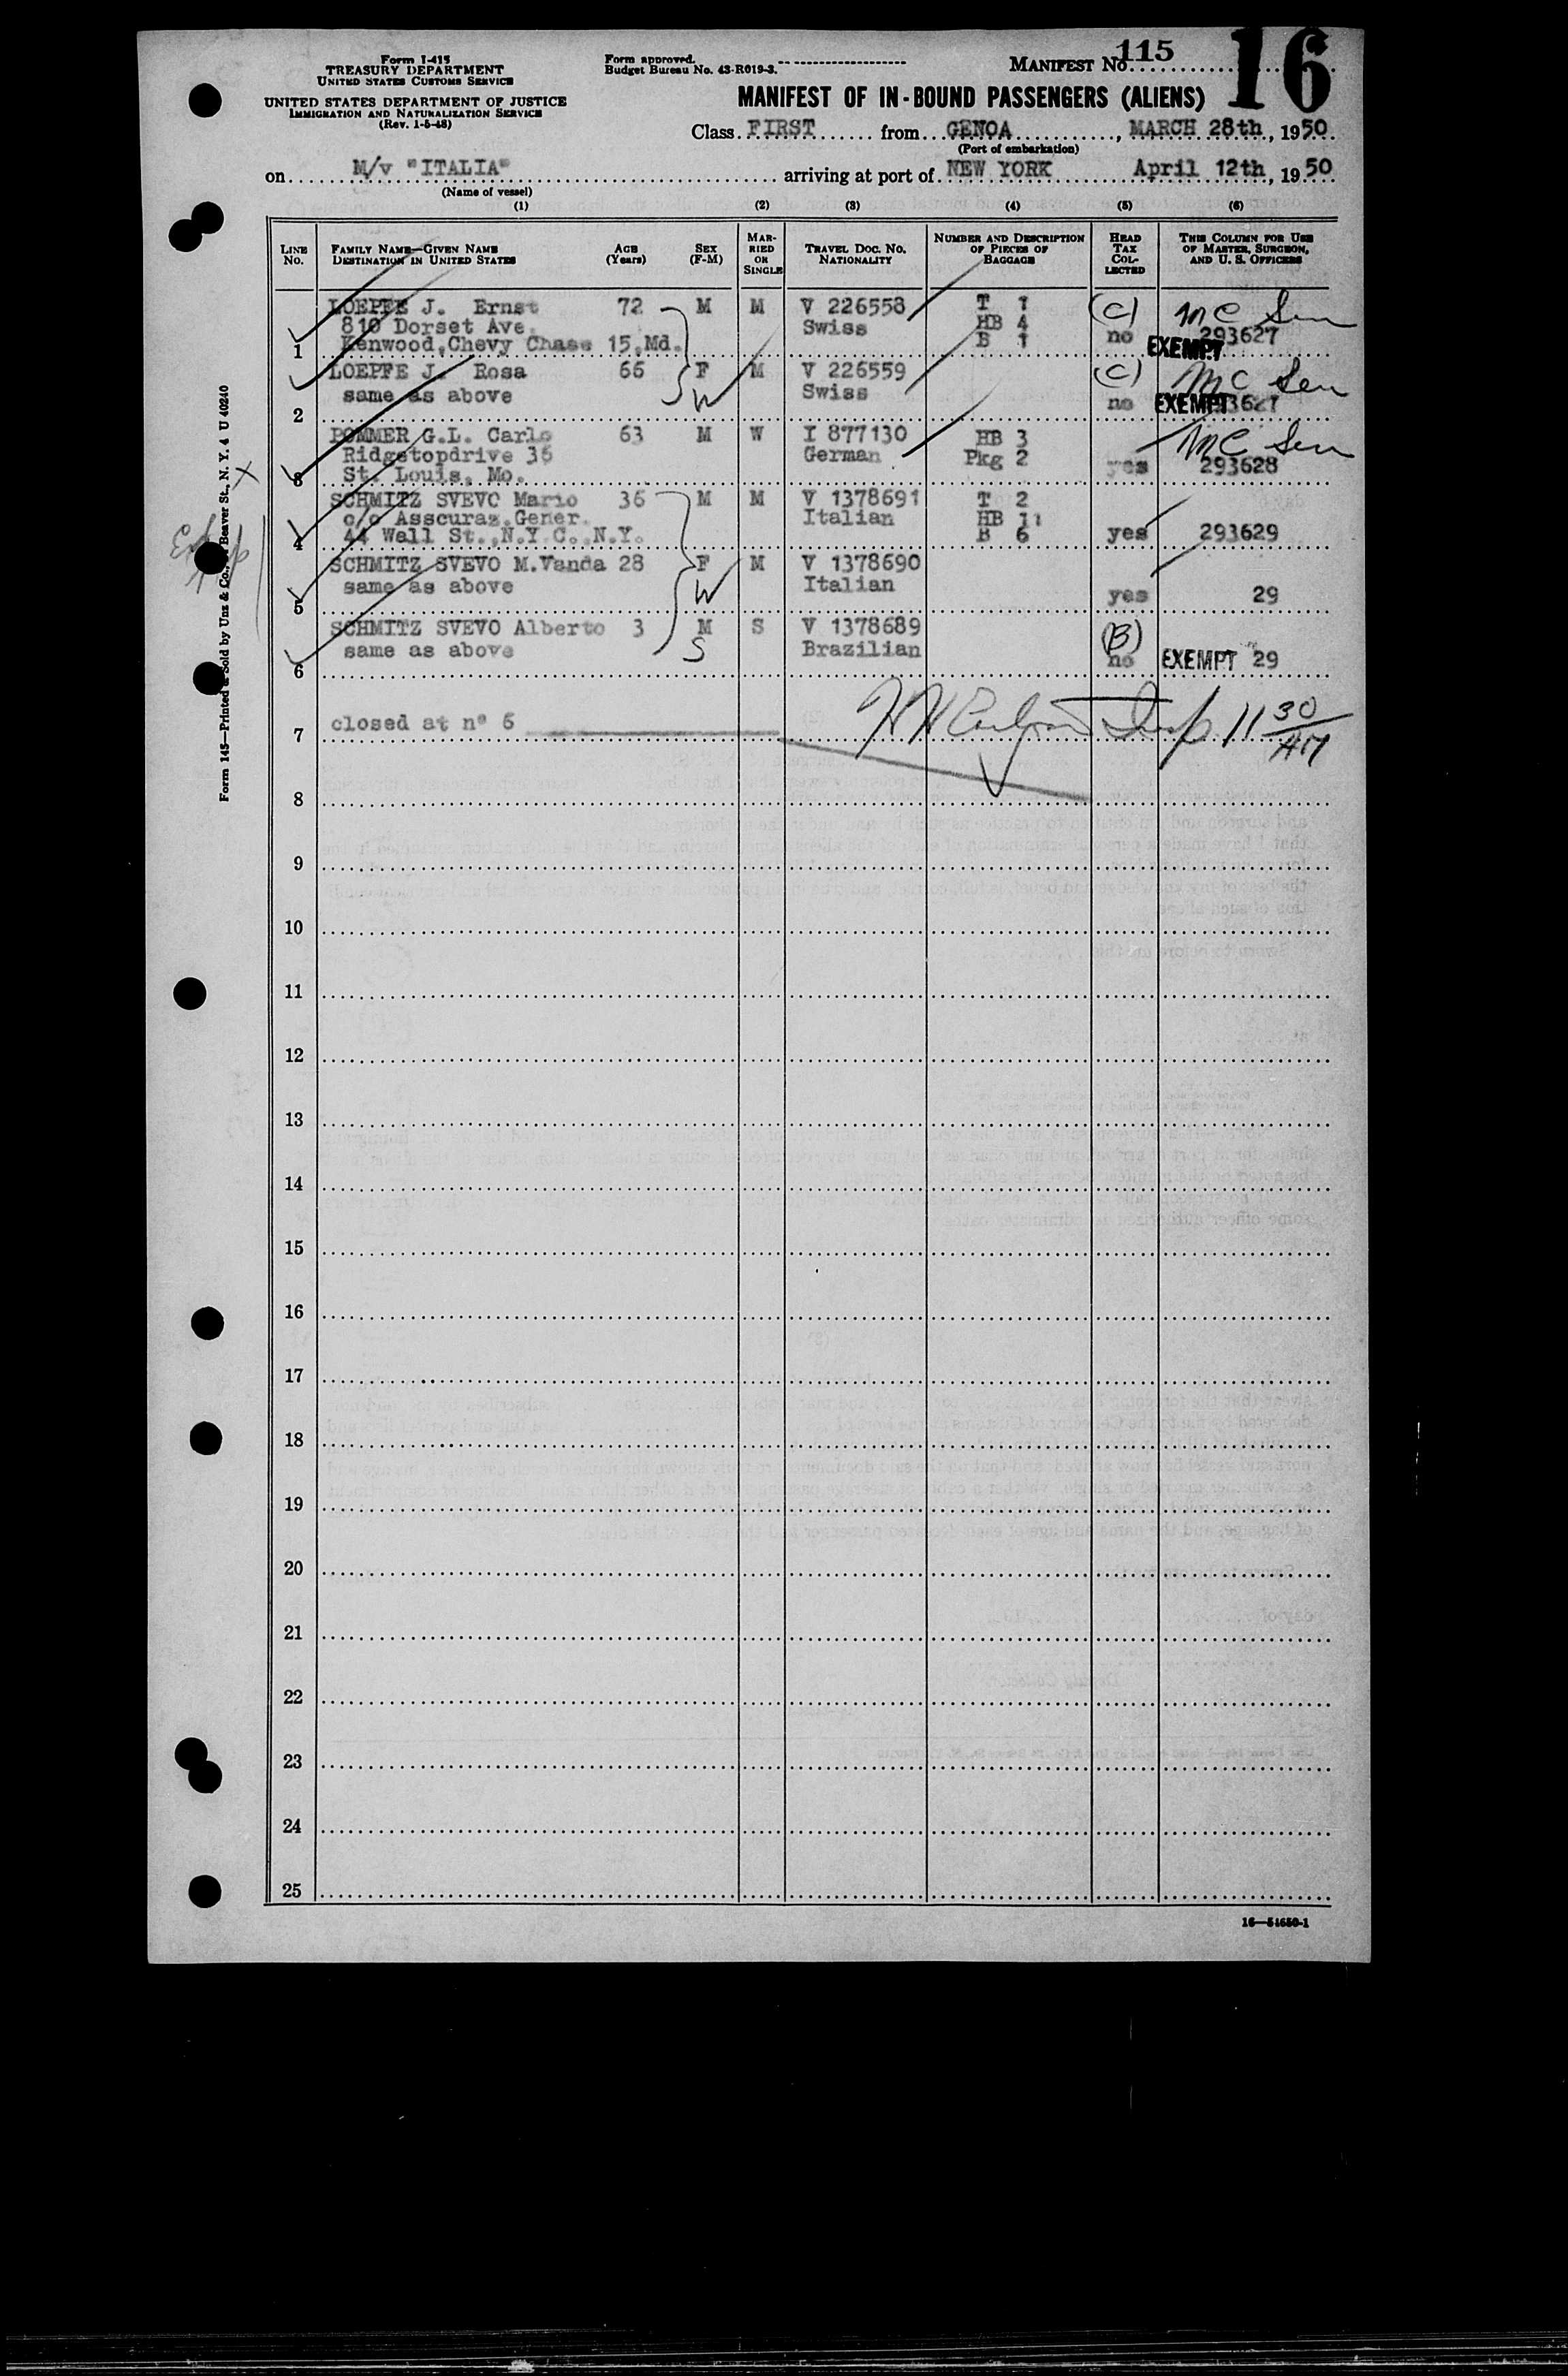 Form I-415
TREASURY DEPARTMENT
UNITED STATES CUSTOMS SERVICE
UNITED STATES DEPARTMENT OF JUSTICE
IMMIGRATION AND NATURALIZATION SERVICE
(Rev. 1-5-48)
Form approved.
Budget Bureau No. 43-R019-3.
MANIFEST No. 115
16
MANIFEST OF IN-BOUND PASSENGERS (ALIENS)
Class FIRST from GENOA, MARCH 28th, 1950
(Port of embarkation)
on M/v "ITALIA" arriving at port of NEW YORK April 12th, 1950
(Name of vessel)
(1) (2) (3) (4) (5) (6)
LINE No. FAMILY NAME—GIVEN NAME DESTINATION IN UNITED STATES AGE (Years) SEX (F-M) MARRIED OR SINGLE TRAVEL DOC. NO. NATIONALITY NUMBER AND DESCRIPTION OF PIECES OF BAGGAGE HEAD TAX COLLECTED THIS COLUMN FOR USE OF MASTER, SURGEON, AND U. S. OFFICERS
LOEPFE J. Ernst 72 M M V 226558 T 1 (C) MC Sen
810 Dorset Ave. Swiss HB 4 no 293627
1 Kenwood,Chevy Chase 15,Md. B 1 EXEMPT
LOEPFE J. Rosa 66 F M V 226559 (C) MC Sen
same as above W Swiss no EXEMPT 293627
2
POMMER G.L. Carlo 63 M W I 877130 HB 3 MC Sen
Ridgetopdrive 36 German Pkg 2
3 St. Louis, Mo. yes 293628
SCHMITZ SVEVO Mario 36 M M V 1378691 T 2
c/o Asscuraz.Gener. Italian HB 11
4 44 Wall St.,N.Y.C.,N.Y. B 6 yes 293629
SCHMITZ SVEVO M.Vanda 28 F M V 1378690
same as above W Italian
5 yes 29
SCHMITZ SVEVO Alberto 3 M S V 1378689 (B)
same as above S Brazilian no EXEMPT 29
6
7 closed at n° 6 Insp 11 30/AM
8
9
10
11
12
13
14
15
16
17
18
19
20
21
22
23
24
25
16—54650-1
Form 145—Printed & Sold by Unz & Co., Beaver St., N. Y. 4 U 40240